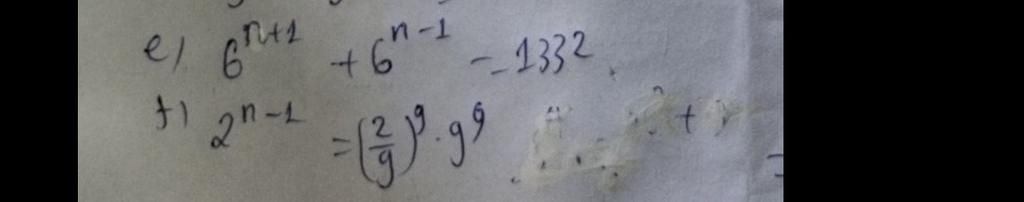 e) 6^{n+1} + 6^{n-1} = 1332
f) 2^{n-1} = (2/9)^9 · 9^9